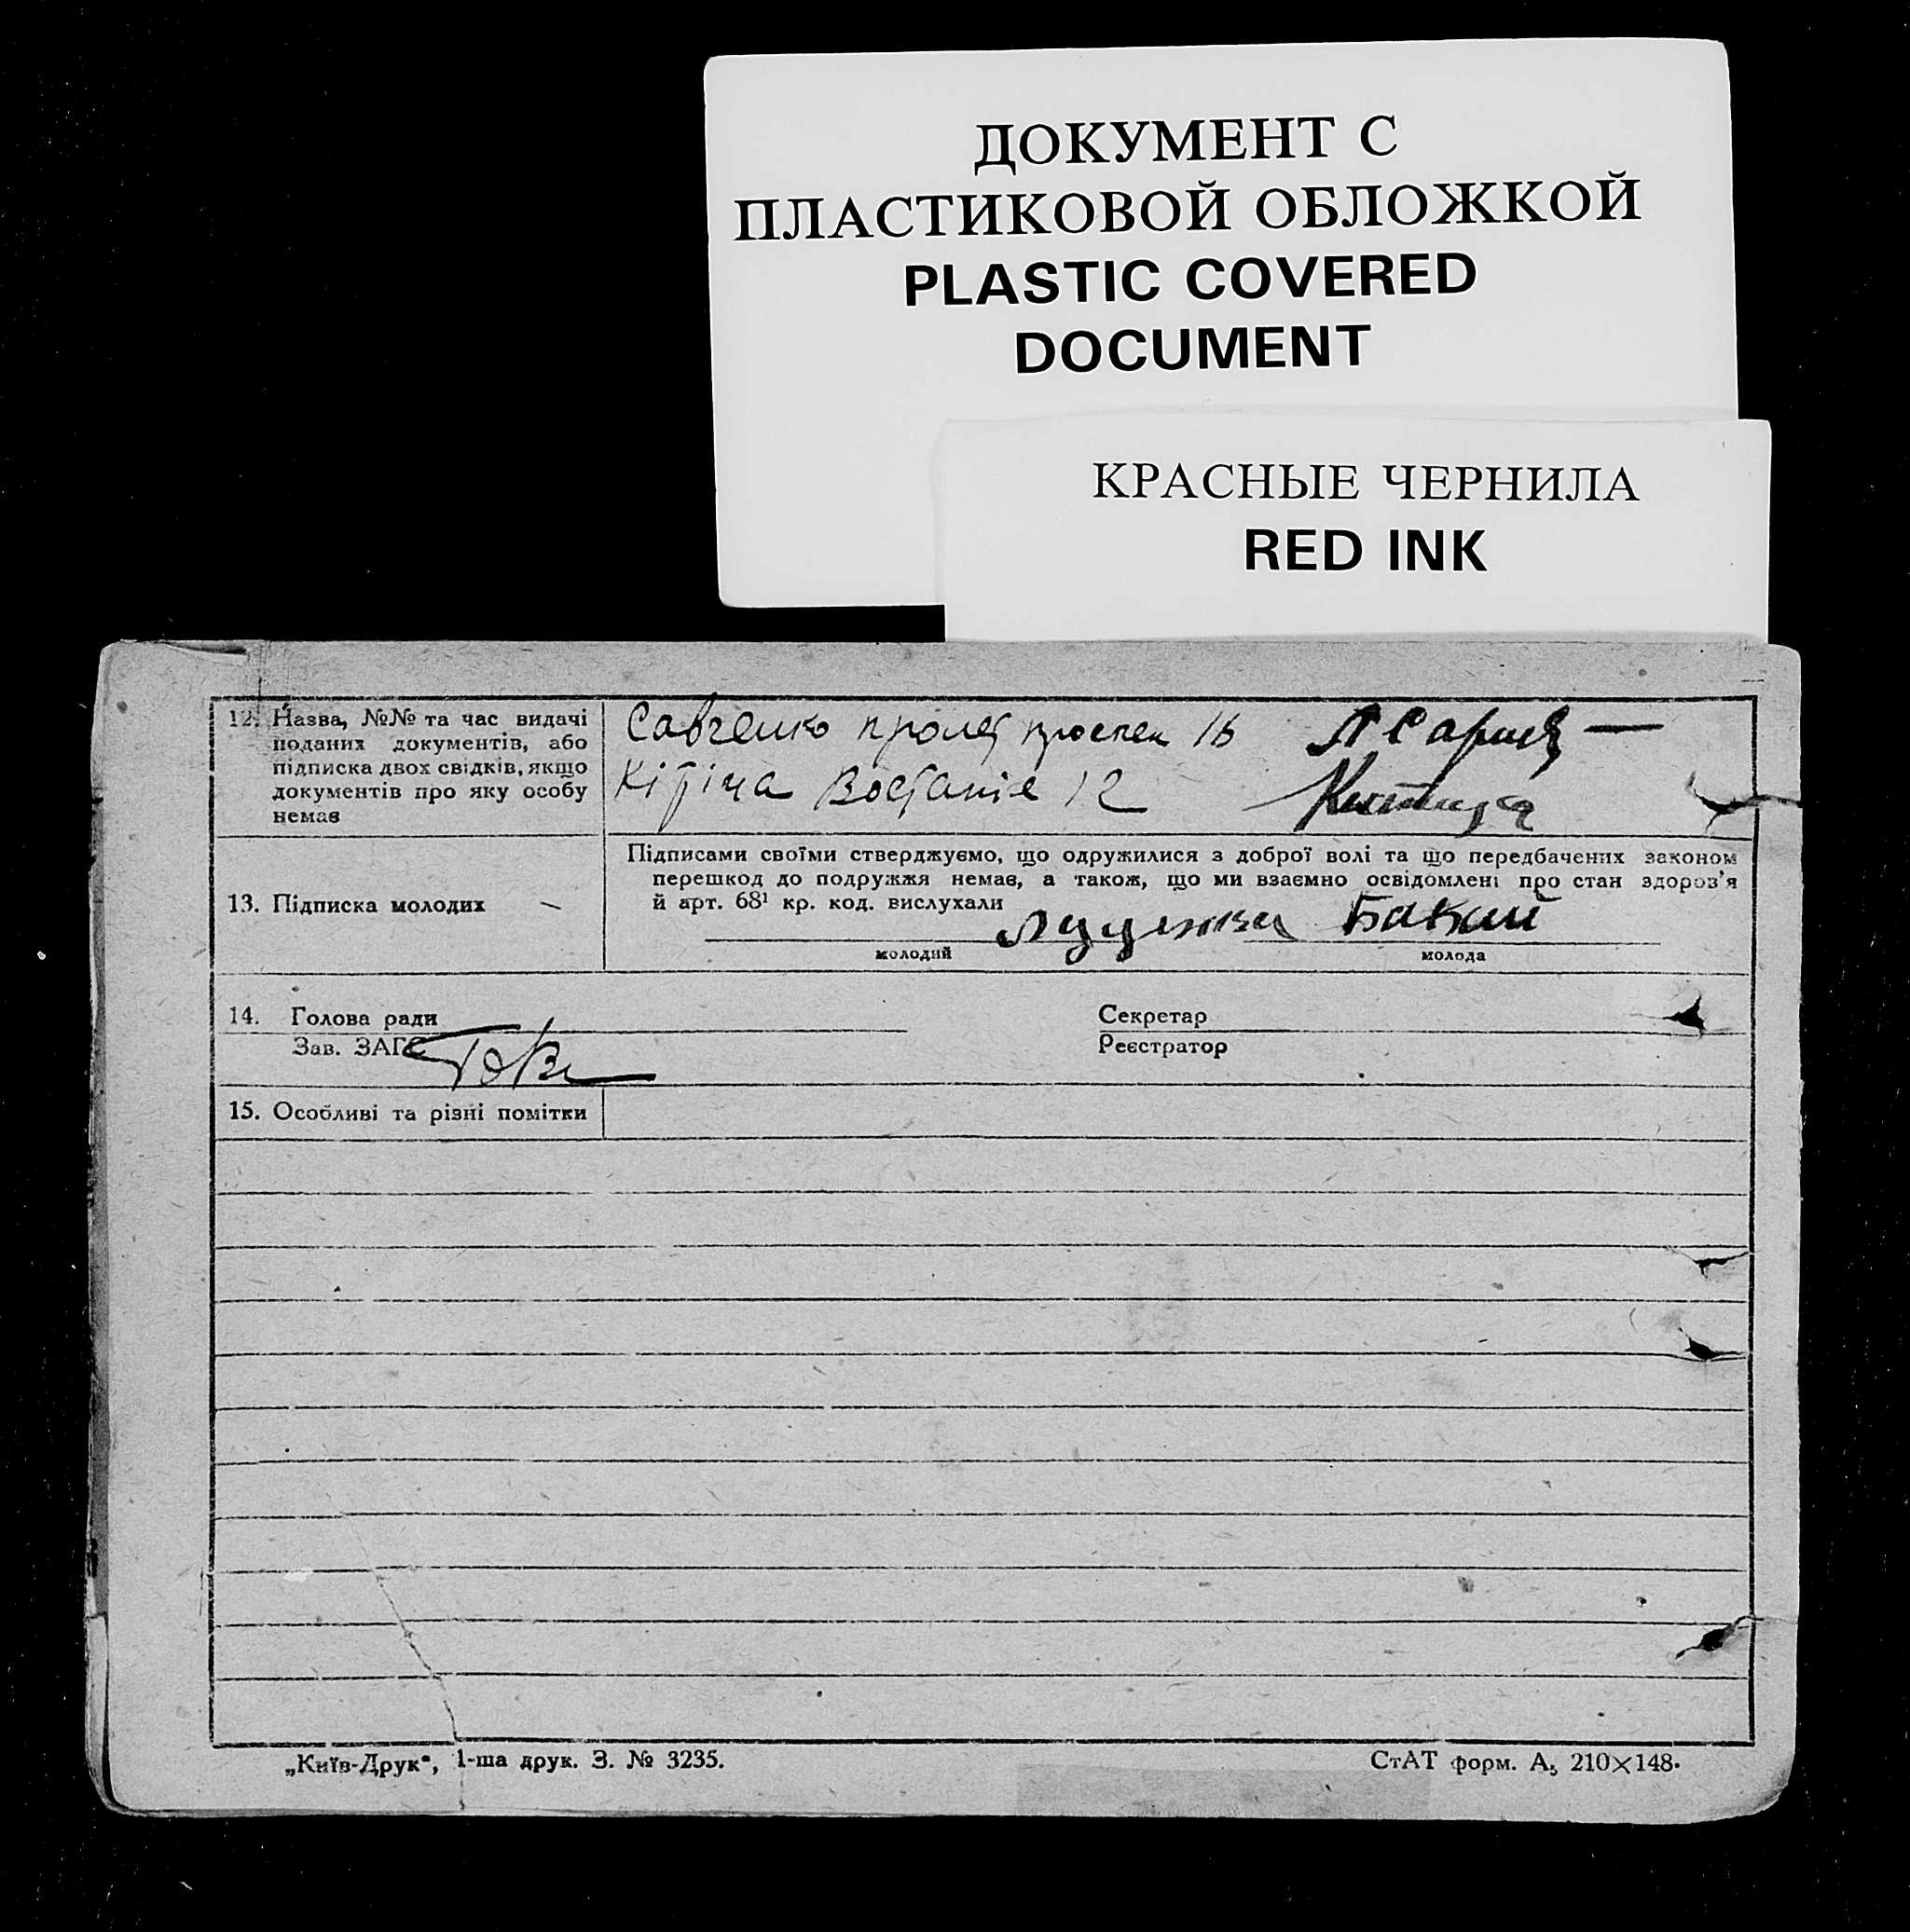 ДОКУМЕНТ С
ПЛАСТИКОВОЙ ОБЛОЖКОЙ
PLASTIC COVERED
DOCUMENT
КРАСНЫЕ ЧЕРНИЛА
RED INK
12. Назва, №№ та час видачі
поданих документів, або
підписка двох свідків, якщо
документів про яку особу
немає
Савченко пролет проспек 16
Кітіча Востаніе 12
Підписами своїми стверджуємо, що одружилися з доброї волі та що передбачених законом
перешкод до подружжя немає, а також, що ми взаємно освідомлені про стан здоров'я
й арт. 68¹ кр. код. вислухали
13. Підписка молодих
Бакай
молодий молода
14. Голова ради Секретар
Зав. ЗАГС Реєстратор
15. Особливі та різні помітки
„Київ-Друк“, 1-ша друк. З. № 3235. СтАТ форм. А₅ 210×148.